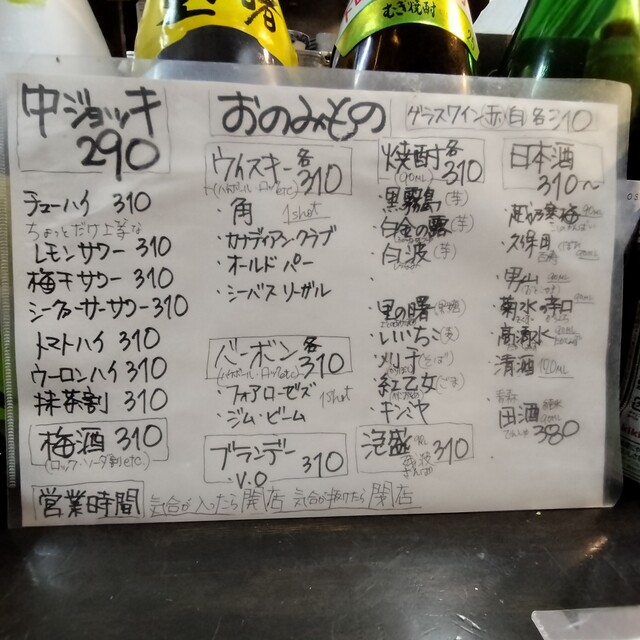 曙
むぎ焼酎
中ジョッキ
290
おのみもの
グラスワイン 赤 白 各310
チューハイ 310
ちょっとだけ上等な
レモンサワー 310
梅干サワー 310
シークァーサーサワー 310
トマトハイ 310
ウーロンハイ 310
抹茶割 310
梅酒 310
(ロック・ソーダ割etc.)
ウイスキー各
310
・角 1shot
・カナディアンクラブ
・オールドパー
・シーバスリーガル
バーボン各
310
・フォアローゼズ 1shot
・ジム・ビーム
ブランデー
V.O 310
焼酎各
(90ml) 310
・黒霧島(芋)
・白金の露(芋)
・白波(芋)
・里の曙(黒糖)
・いいちこ(麦)
・刈干(そば)
・紅乙女(ごま)
・キンミヤ
泡盛 310
日本酒
310~
・越乃寒梅
・久保田
・男山
・菊水の辛口
・高清水
・清酒 120ml
・田酒 380
営業時間 気合が入ったら開店 気合が抜けたら閉店